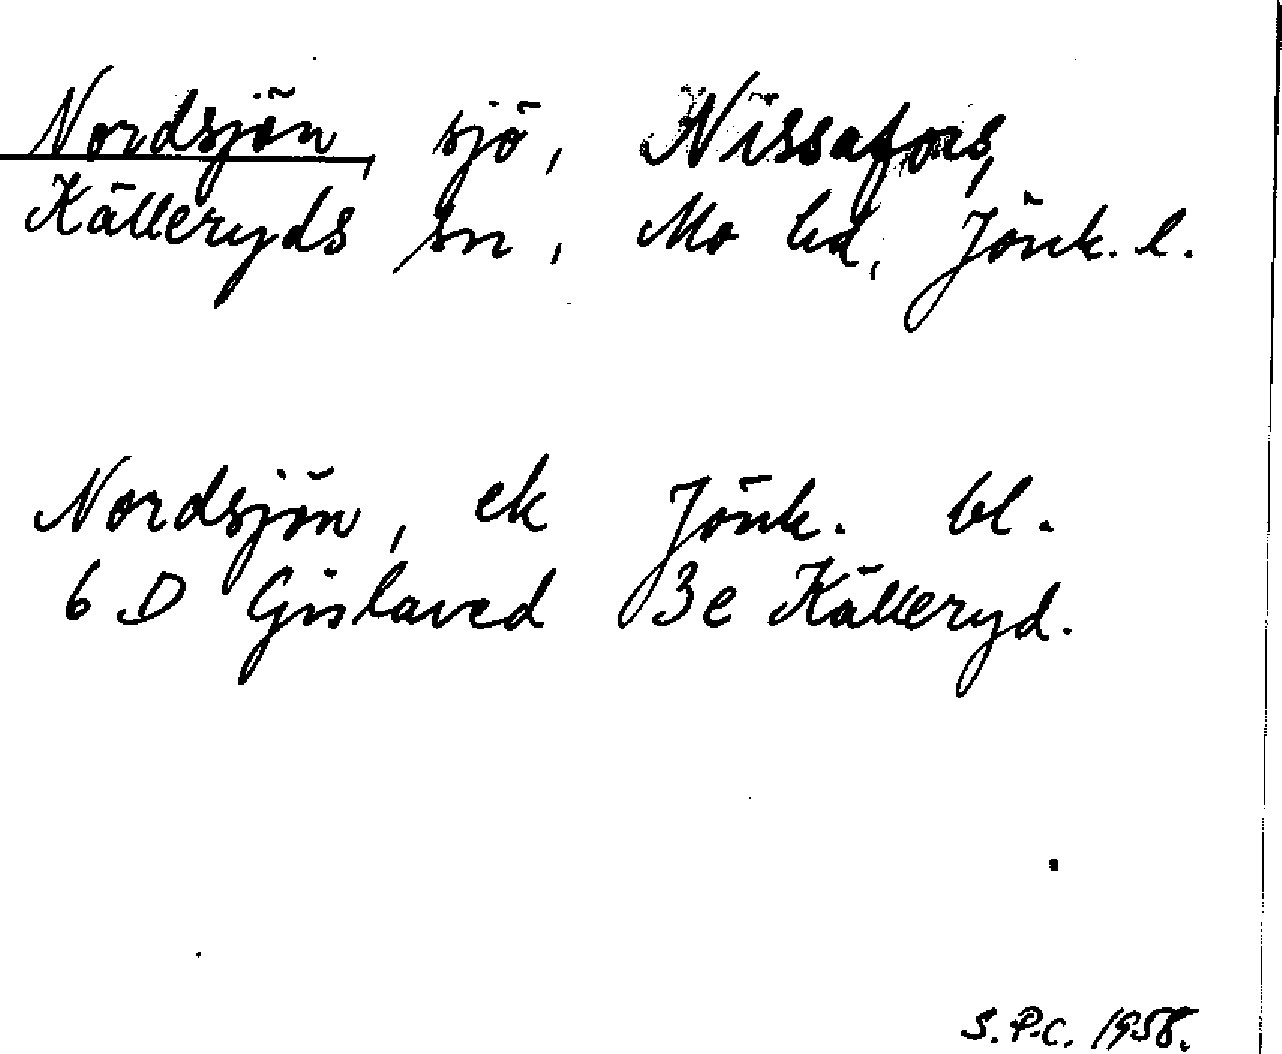 Nordsjön, sjö, Nissafors,
Källeryds sn, Mo hd, Jönk. l.
Nordsjön, ek Jönk. bl.
6 D Gislaved 3e Källeryd.
S.P.C. 1958.